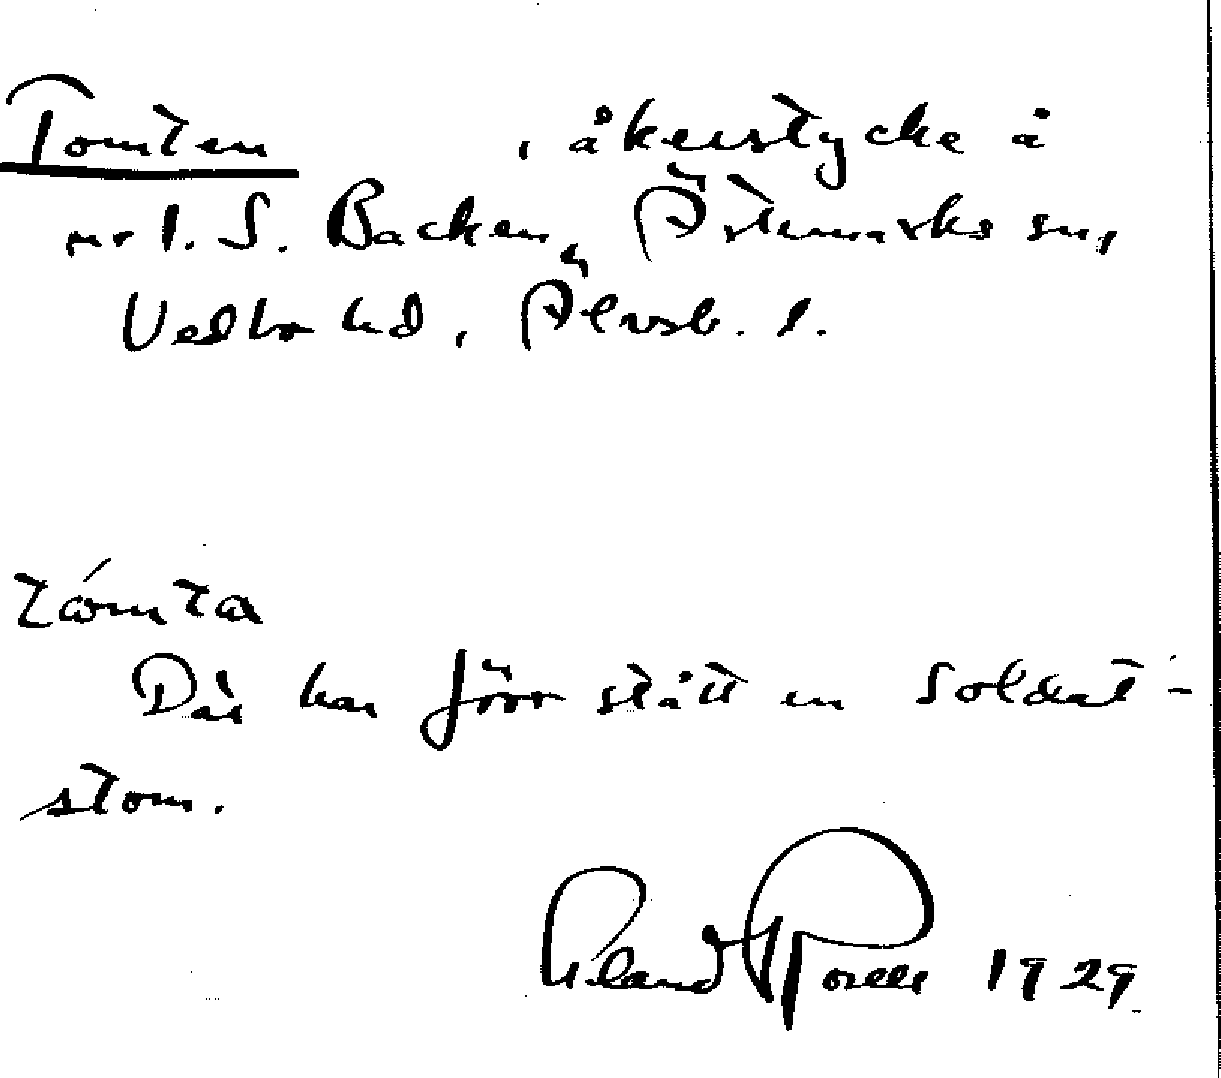 Tomten , åkerstycke å
nr 1. S. Backen, Ärtemarks sn,
Vedbo hd, Älvsb. l.
tómta
Där har förr stått en soldat-
stom.
1929